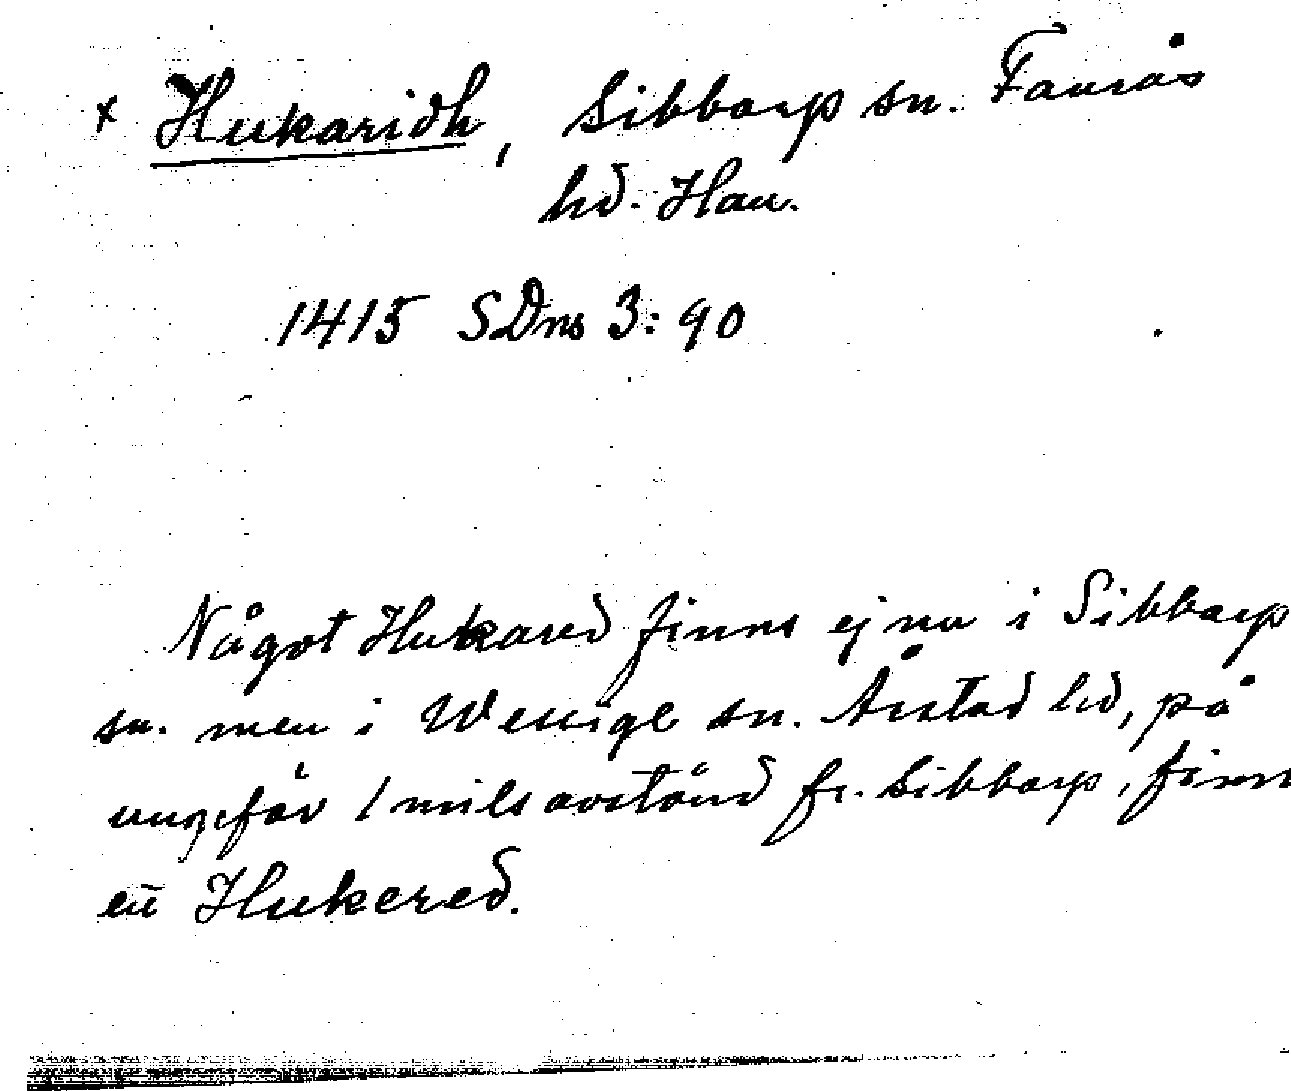 x Hukaridh, Sibbarp sn. Faurås
hd. Hall.
1415 SDns 3:90
Något Hukared finns ej nu i Sibbarp
sn. men i Wessige sn. Årstad hd, på
ungefär 1 mils avstånd fr. Sibbarp, finn
ett Hukered.